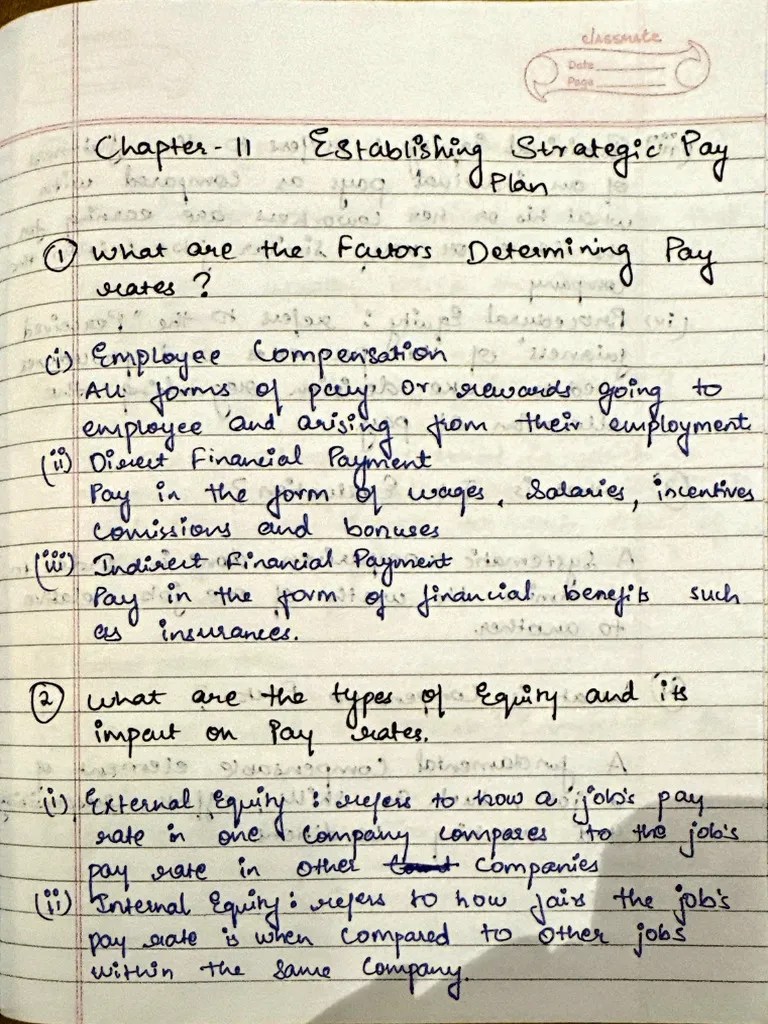 classmate
Date
Page
Chapter - 11 Establishing Strategic Pay
Plan
① What are the Factors Determining Pay
rates ?
(i) Employee Compensation
All forms of pay or rewards going to
employee and arising from their employment
(ii) Direct Financial Payment
Pay in the form of wages, Salaries, incentives
comissions and bonuses
(iii) Indirect Financial Payment
Pay in the form of financial benefits such
as insurances.
② What are the types of Equity and its
impact on Pay rates.
(i) External Equity : refers to how a job's pay
rate in one Company compares to the job's
pay rate in other Companies
(ii) Internal Equity : refers to how fair the job's
pay rate is when compared to other jobs
within the same Company.